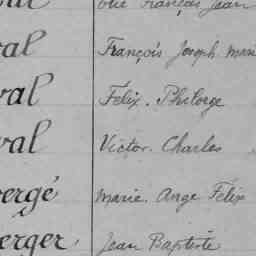 François Jean
al François Joseph Marie
val Felix. Philorge
val Victor. Charles
ergé Marie. Ange Felix
erger, Jean Baptiste